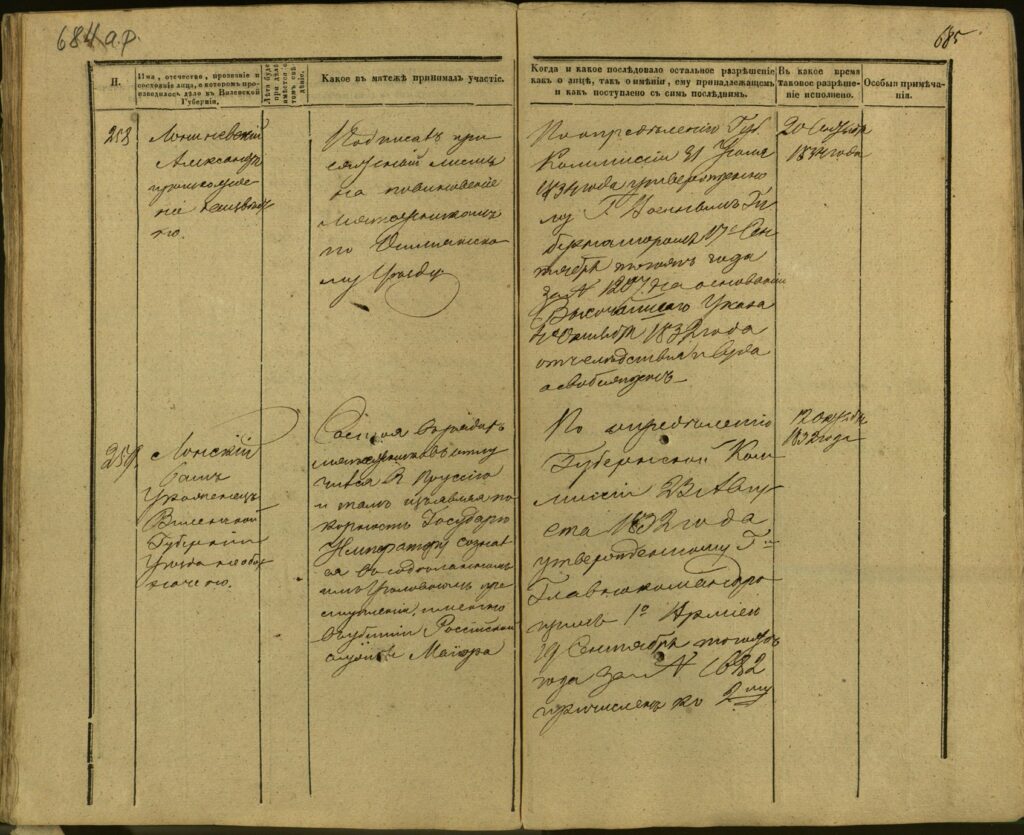 684 а.р.
685
N.
Имя, отчество, прозваніе и
состояніе лица, о которомъ про-
изводилось дѣло въ Виленской
Губерніи.
Лѣта буде
при дѣлѣ
имѣется о
томъ свѣ
дѣніе.
Какое въ мятежѣ принималъ участіе.
Когда и какое послѣдовало остальное разрѣшеніе
какъ о лицѣ, такъ о имѣніи, ему принадлежащемъ
и какъ поступлено съ симъ послѣднимъ.
Въ какое время
таковое разрѣше-
ніе исполнено.
Особыя примѣча-
нія.
253
Александръ
происхожде-
нія неизвѣст-
го.
Подписалъ при-
сяжный листъ
на повиновеніе
мятежникамъ
по Ошмянско-
му Уѣзду.
По опредѣленію Губ.
Коммиссіи 31
1834 года утвержденно-
му Г. Военнымъ Гу-
бернаторомъ 17 Сен-
тября тогожъ года
за N 1207 на основаніи
Высочайшаго Указа
4 Октября 1832 года
отъ слѣдствія и суда
освобожденъ.
20
1834 года
254.
Лонскій
Уроженецъ
Виленской
Губерніи
Уѣзда не обоз-
начено.
Состоя въ рядахъ
мятежниковъ отлу-
чился въ Пруссію
и тамъ изъявилъ по-
корность Государю
Императору сознав-
ся въ содѣланномъ
имъ Уголовномъ пре-
ступленіи, именно
въ убитіи Россійской
службы Маіора
По опредѣленію
Губернской Ком-
миссіи 23 Авгу-
ста 1832 года
утвержденному Г.
Главнокомандую-
щимъ 1й Арміею
19 Сентября тогожъ
года за N 1682
причисленъ ко 2му
12 Октября
1832 года